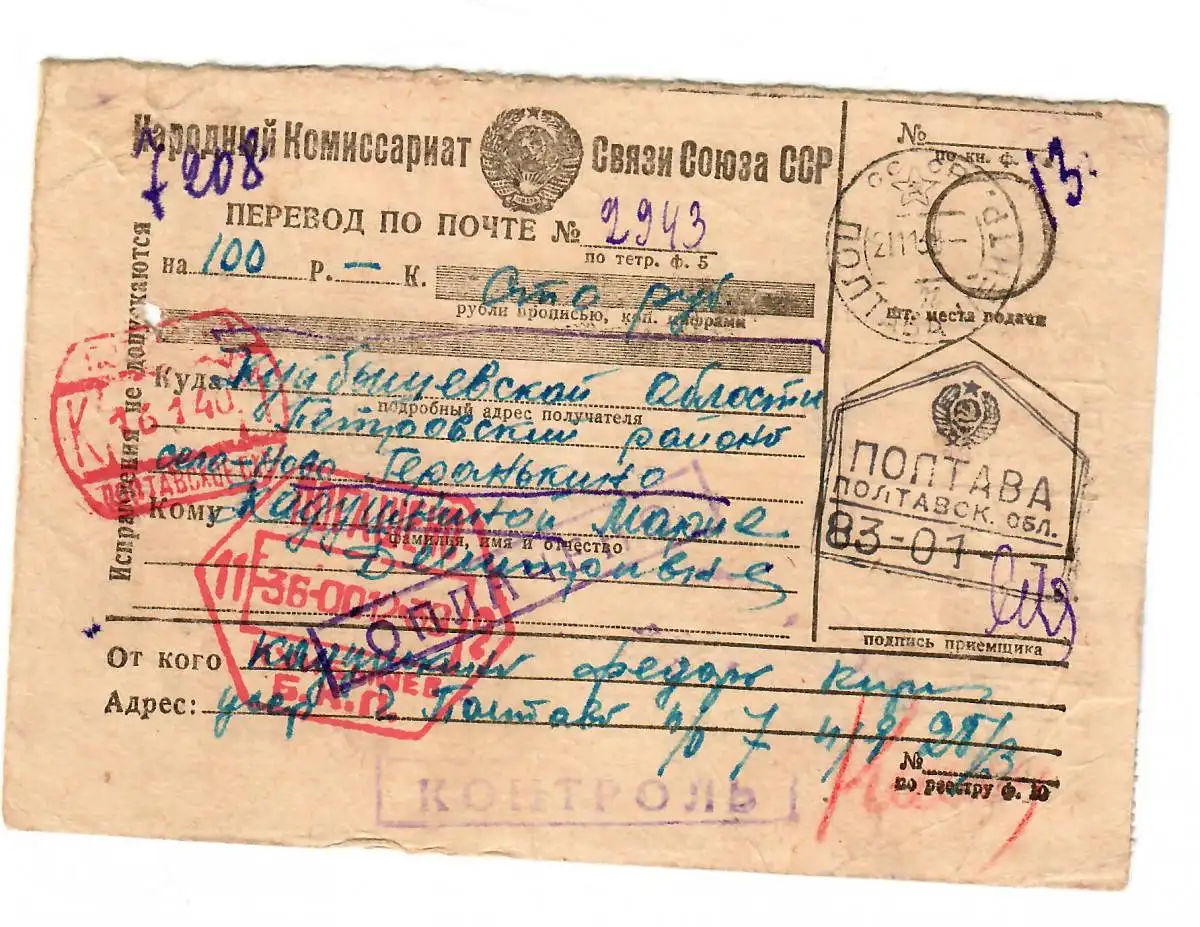 Народный Комиссариат Связи Союза ССР
7208
ПЕРЕВОД ПО ПОЧТЕ № 2943
по тетр. ф. 5
на 100 Р. — К. Сто руб
рубли прописью, коп. цифрами
Исправления не допускаются
Куда Куйбышевской области
подробный адрес получателя
Петровский район
село-Ново Геранькино
Кому Кадушкиной Марие
фамилия, имя и отчество
От кого Кадушкин Федор
Адрес: 2 Полтава п/о 7 п/я 25/3
№
по реестру ф. 10
№
по кн. ф.
13
шт. места подачи
ПОЛТАВА
ПОЛТАВА
ПОЛТАВСК. ОБЛ.
83-01
подпись приемщика
16 1 40
ПОЛТАВСКОЙ
11
36-00
КОНТРОЛЬ